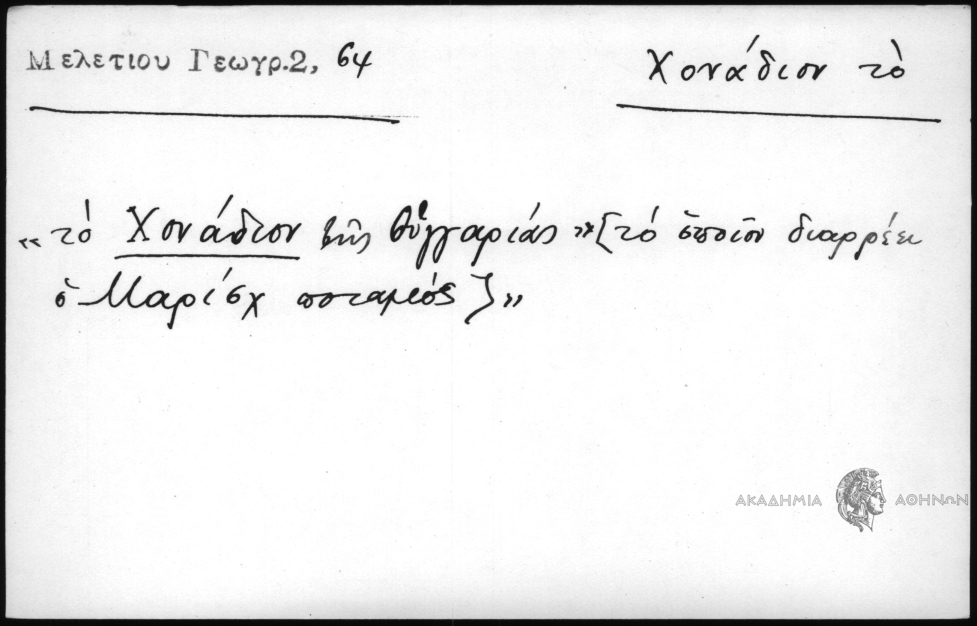 Μελετίου Γεωγρ.2, 64
Χονάδιον τὸ
«τὸ Χονάδιον τῆς Οὑγγαρίας» [τὸ ὁποῖον διαρρέει
ὁ Μαρίσχ ποταμός]»
ΑΚΑΔΗΜΙΑ ΑΘΗΝΩΝ